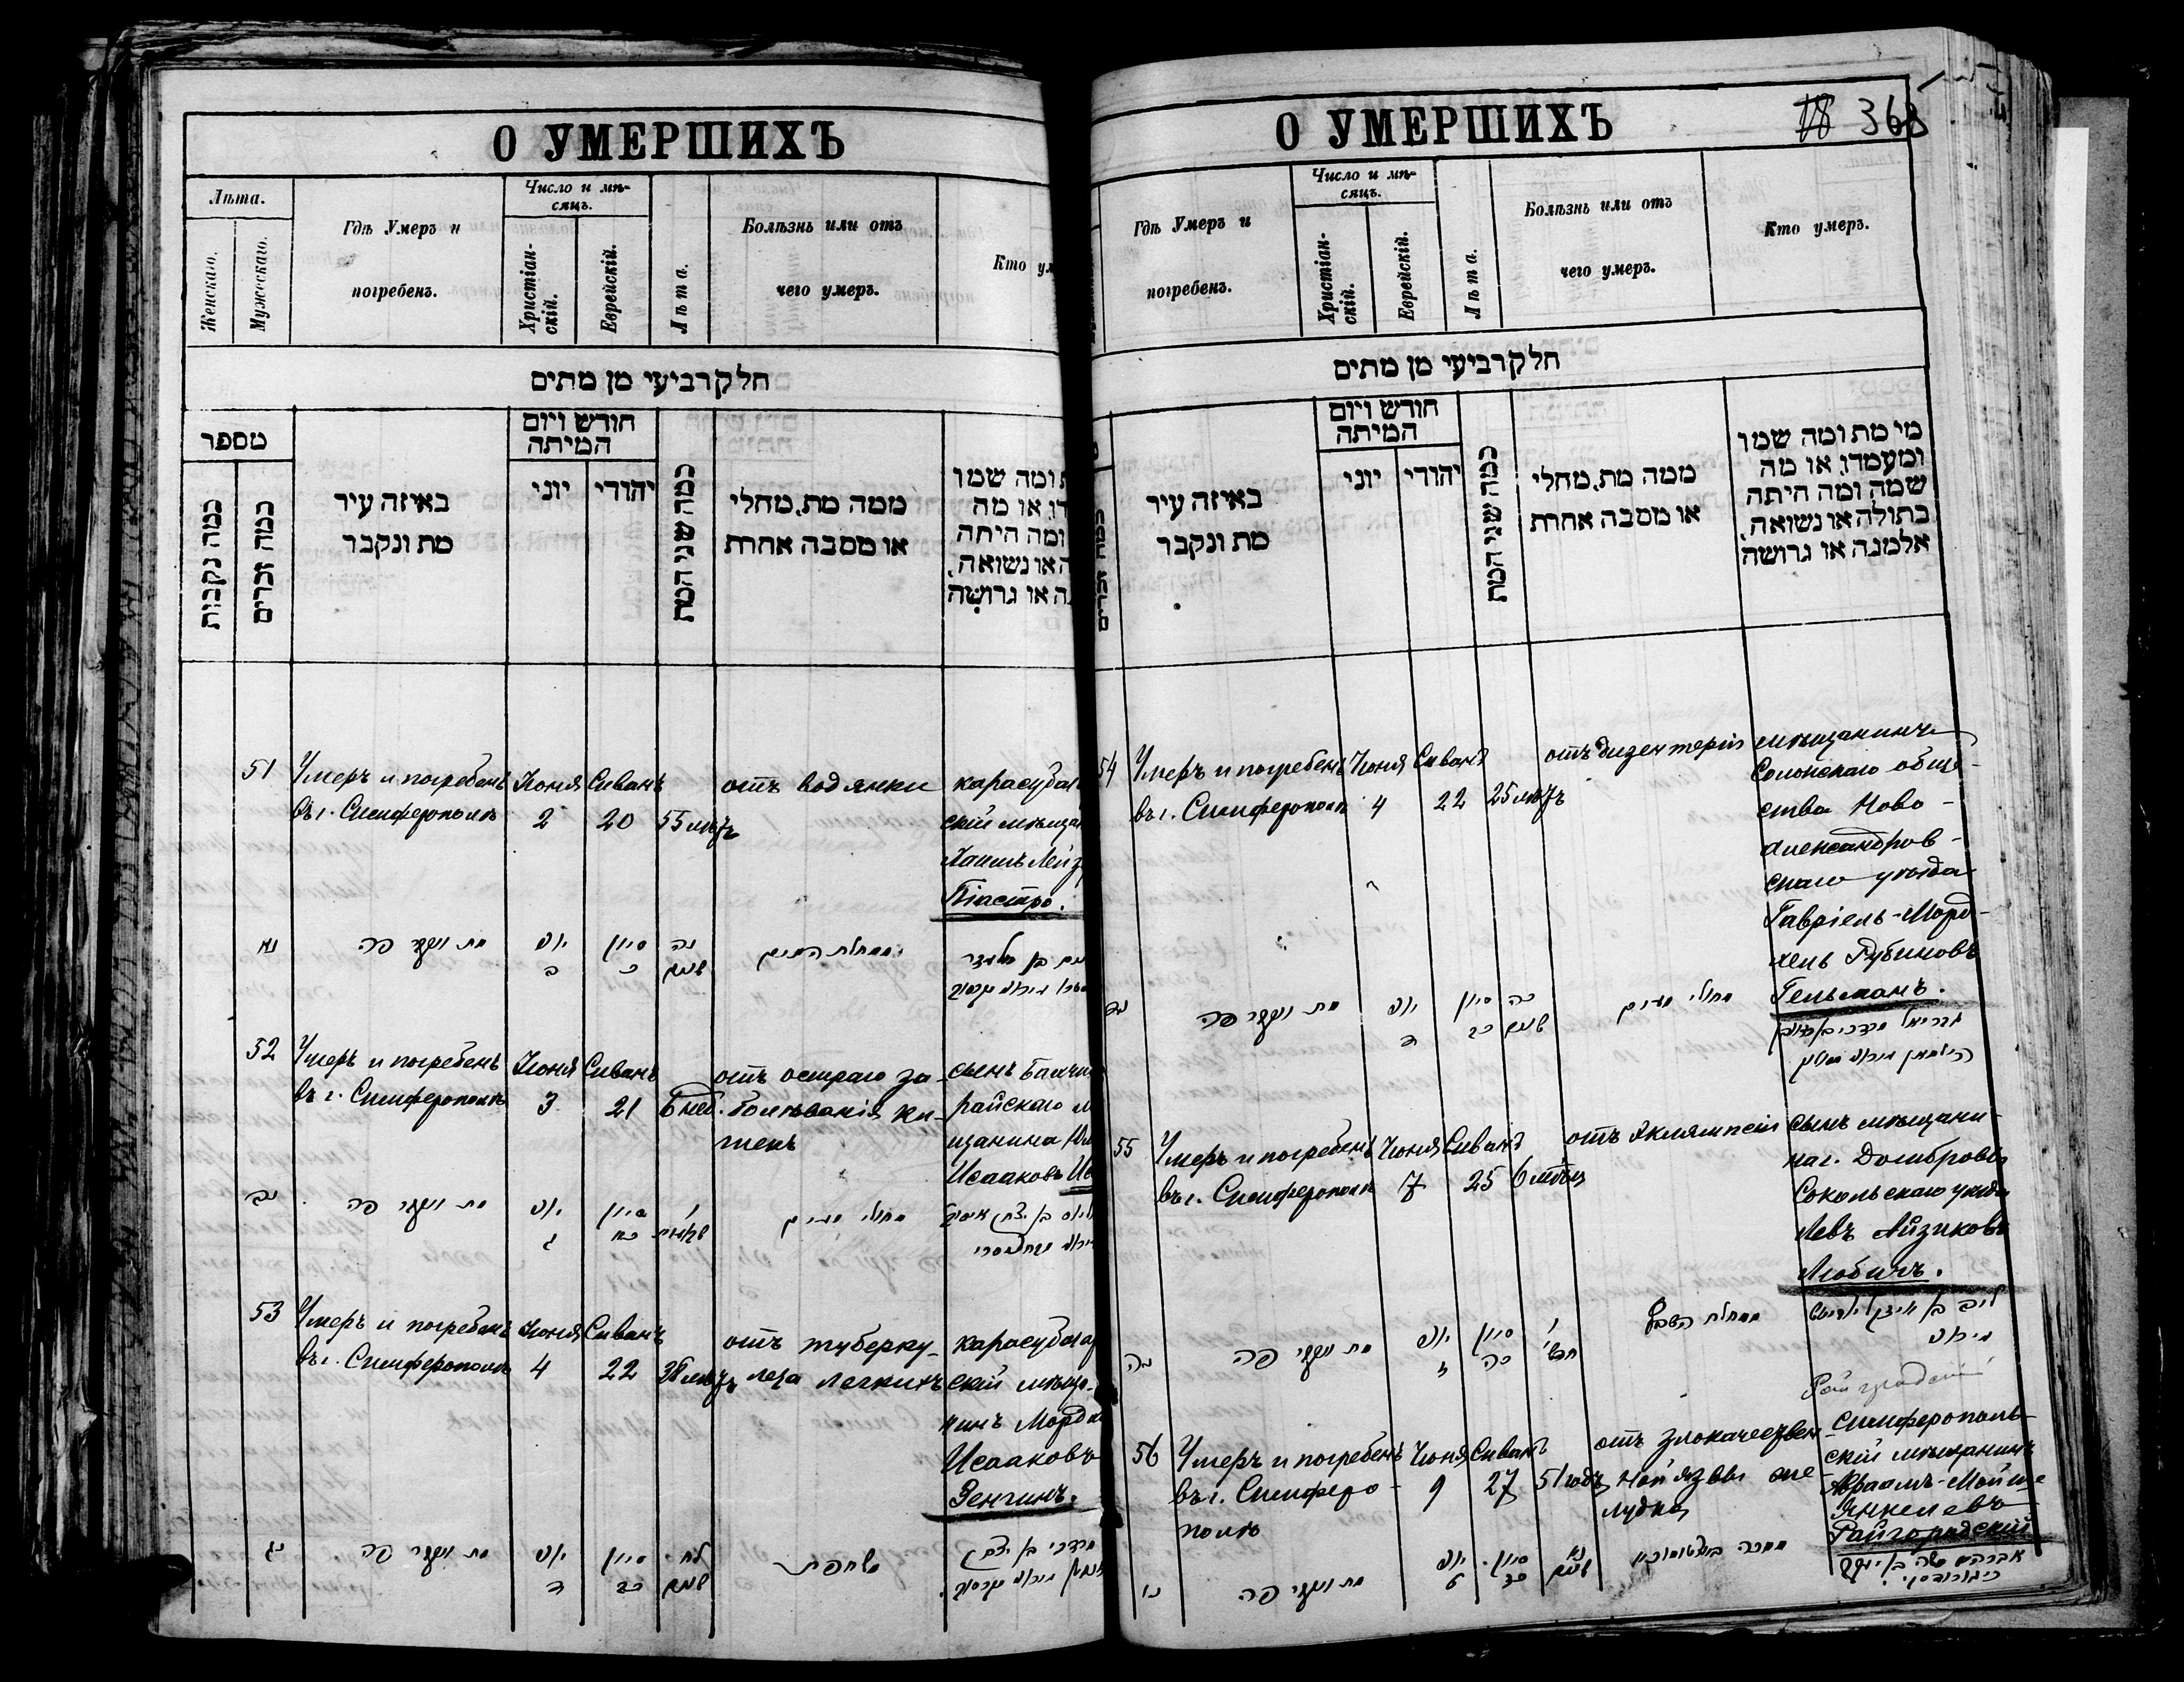 О УМЕРШИХЪ
Лѣта.
Женскаго.
Мужескаго.
Гдѣ Умеръ и
погребенъ.
Число и мѣ-
сяцъ.
Христіан-
скій.
Еврейскій.
Лѣта.
Болѣзнь или отъ
чего умеръ.
Кто ум
חלק רביעי מן מתים
מספר
כמה נקבות
כמה זכרים
באיזה עיר
מת ונקבר
חודש ויום
המיתה
יוני
יהודי
כמה שני המת
ממה מת, מחלי
או מסבה אחרת
ת ומה שמו
דו, או מה
ומה היתה
ה או נשואה,
נה או גרושה
51
Умеръ и погребенъ
въ г. Симферополѣ
Іюня
2
Сиванъ
20
55 лѣтъ
отъ водянки
карасубаз
скій мѣщан
Хаимъ Лейз
Піастро.
נא
מת ונקבר פה
יוני
ב
סיון
כ
נה
שנים
52
Умеръ и погребенъ
въ г. Симферополѣ
Іюня
3
Сиванъ
21
6 нед.
отъ остраго за-
болѣванія ки-
шекъ
сынъ Бахчи
райскаго м
щанина
Исааковъ
נב
מת ונקבר פה
יוני
ג
סיון
כא
ו
מחולי מעים
53
Умеръ и погребенъ
въ г. Симферополѣ
Іюня
4
Сиванъ
22
38 лѣтъ
отъ туберку-
леза легкихъ
карасубаза
скій мѣща-
нинъ Морд
Исааковъ
Зенгинъ.
נג
מת ונקבר פה
יוני
ד
סיון
כב
לח
שנים
משחפת
מרדכי בן יצחק
О УМЕРШИХЪ
18 368
Гдѣ Умеръ и
погребенъ.
Число и мѣ-
сяцъ.
Христіан-
скій.
Еврейскій.
Лѣта.
Болѣзнь или отъ
чего умеръ.
Кто умеръ.
חלק רביעי מן מתים
באיזה עיר
מת ונקבר
חודש ויום
המיתה
יוני
יהודי
כמה שני המת
ממה מת, מחלי
או מסבה אחרת
מי מת ומה שמו
ומעמדו, או מה
שמה ומה היתה
בתולה או נשואה,
אלמנה או גרושה
54
Умеръ и погребенъ
въ г. Симферополѣ
Іюня
4
Сиванъ
22
25 лѣтъ
отъ дизентеріи
мѣщанинъ
Солокскаго обще-
ства Ново-
александров-
скаго уѣзда
Гавріель-Морд-
хель Рубиновъ
Гельманъ.
נד
מת ונקבר פה
יוני
ד
סיון
כב
כה
שנים
מחולי מעים
55
Умеръ и погребенъ
въ г. Симферополѣ
Іюня
7
Сиванъ
25
6 мѣсяц
отъ эклямпсіи
сынъ мѣщани-
на г. Домбровы
Сокольскаго уѣзда
Левъ Айзиковъ
Любичъ.
נה
מת ונקבר פה
יוני
ז
סיון
כה
ו
חדשי
מחלת השבץ
Райградскій
56
Умеръ и погребенъ
въ г. Симферо-
полѣ
Іюня
9
Сиванъ
27
51 годъ
отъ злокачествен-
ной язвы же-
лудка
симферополь-
скій мѣщанинъ
Авраамъ-Мойше
Янкелевъ
Райгородскій
נו
מת ונקבר פה
יוני
ט
סיון
כז
נא
שנים
אברהם משה בן יעקב